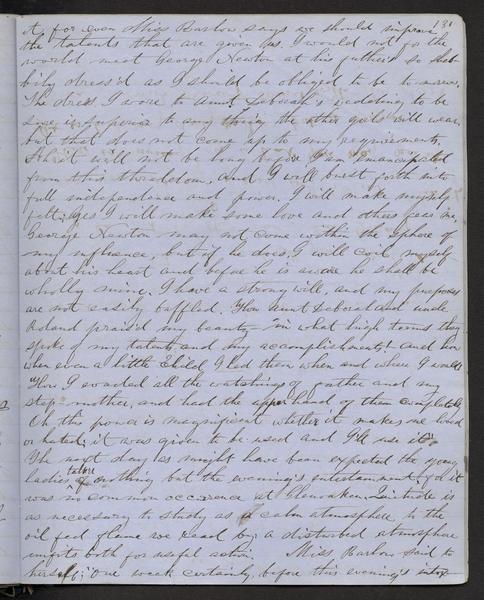 131
it, for even Miss Barlow says we should improve
the talents that are given us. I would not for the
world meet George Newton at his father's so shab-
bily dress'd as I should be obliged to be to-morrow.
The dress I wore to Aunt Deborah's wedding to be
sure is superior to any thing the other girls will wear
but that does not come up to my requirements.
Oh it will not be long before I am emancipated
from this thraldom, and I will burst forth into
full independence and power. I will make myself
felt; yes I will make some love and others fear me,
George Newton may not come within the sphere of
my influence, but if he does, I will coil myself
about his heart and before he is aware he shall be
wholly mine. I have a strong will, and my purposes
are not easily baffled. How Aunt Deborah and uncle
Roland prais'd my beauty, in what high terms they
spoke of my talents and my accomplishments! And how
when even a little child I led them when and where I would
How I evaded all the watchings of father and my
step-mother, and had the upper hand of them completely,
Oh this power is magnificent whether it makes me loved
or hated; it was given to be used and I'll use it.
The next day as might have been expected the young
ladies talked of nothing but the evening's entertainment, for it
was no common occurence at Glenoaken. Quietude is
as necessary to study as a calm atmosphere to the
oil fed flame we read by; a disturbed atmosphere
unfits both for useful action. Miss Barlow said to
herself; "One week certainly, before this evening's